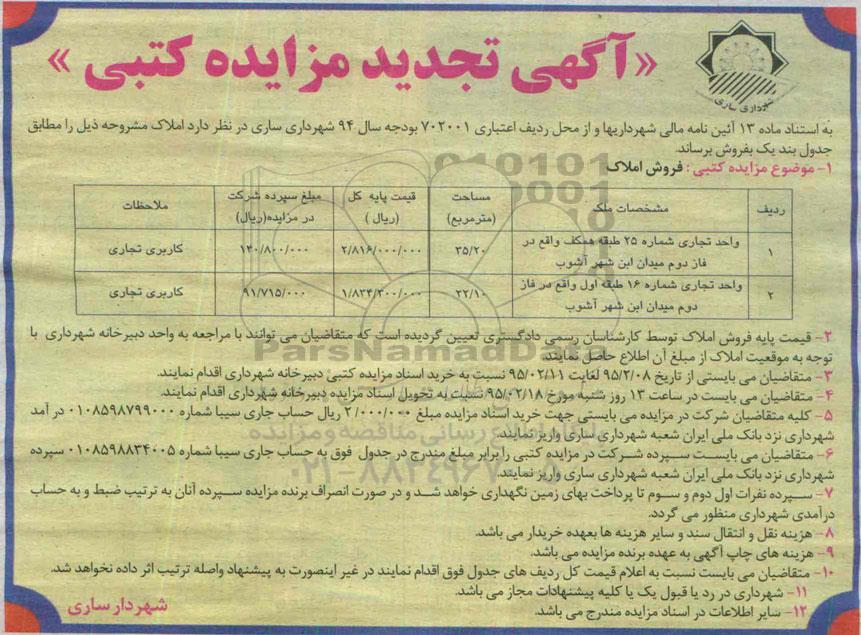 شهرداری ساری
«آگهی تجدید مزایده کتبی»
به استناد ماده ۱۳ آئین نامه مالی شهرداریها و از محل ردیف اعتباری ۷۰۲۰۰۱ بودجه سال ۹۴ شهرداری ساری در نظر دارد املاک مشروحه ذیل را مطابق
جدول بند یک بفروش برساند.
۱- موضوع مزایده کتبی: فروش املاک
ردیف مشخصات ملک مساحت (مترمربع) قیمت پایه کل (ریال) مبلغ سپرده شرکت در مزایده(ریال) ملاحظات
۱ واحد تجاری شماره ۲۵ طبقه همکف واقع در فاز دوم میدان ابن شهر آشوب ۳۵/۲۰ ۲/۸۱۶/۰۰۰/۰۰۰ ۱۴۰/۸۰۰/۰۰۰ کاربری تجاری
۲ واحد تجاری شماره ۱۶ طبقه اول واقع در فاز دوم میدان ابن شهر آشوب ۲۲/۱۰ ۱/۸۳۴/۳۰۰/۰۰۰ ۹۱/۷۱۵/۰۰۰ کاربری تجاری
۲- قیمت پایه فروش املاک توسط کارشناسان رسمی دادگستری تعیین گردیده است که متقاضیان می توانند با مراجعه به واحد دبیرخانه شهرداری با
توجه به موقعیت املاک از مبلغ آن اطلاع حاصل نمایند.
۳- متقاضیان می بایستی از تاریخ ۹۵/۲/۰۸ لغایت ۹۵/۰۲/۱۱ نسبت به خرید اسناد مزایده کتبی دبیرخانه شهرداری اقدام نمایند.
۴- متقاضیان می بایست در ساعت ۱۳ روز شنبه مورخ ۹۵/۰۲/۱۸ نسبت به تحویل اسناد مزایده دبیرخانه شهرداری اقدام نمایند.
۵- کلیه متقاضیان شرکت در مزایده می بایستی جهت خرید اسناد مزایده مبلغ ۲/۰۰۰/۰۰۰ ریال حساب جاری سیبا شماره ۰۱۰۸۵۹۸۷۹۹۰۰۰ در آمد
شهرداری نزد بانک ملی ایران شعبه شهرداری ساری واریز نمایند.
۶- متقاضیان می بایست سپرده شرکت در مزایده کتبی را برابر مبلغ مندرج در جدول فوق به حساب جاری سیبا شماره ۰۱۰۸۵۹۸۸۳۴۰۰۵ سپرده
شهرداری نزد بانک ملی ایران شعبه شهرداری ساری واریز نمایند.
۷- سپرده نفرات اول دوم و سوم تا پرداخت بهای زمین نگهداری خواهد شد و در صورت انصراف برنده مزایده سپرده آنان به ترتیب ضبط و به حساب
درآمدی شهرداری منظور می گردد.
۸- هزینه نقل و انتقال سند و سایر هزینه ها بعهده خریدار می باشد.
۹- هزینه های چاپ آگهی به عهده برنده مزایده می باشد.
۱۰- متقاضیان می بایست نسبت به اعلام قیمت کل ردیف های جدول فوق اقدام نمایند در غیر اینصورت به پیشنهاد واصله ترتیب اثر داده نخواهد شد.
۱۱- شهرداری در رد یا قبول یک یا کلیه پیشنهادات مجاز می باشد.
۱۲- سایر اطلاعات در اسناد مزایده مندرج می باشد.
شهردار ساری
ParsNamadData